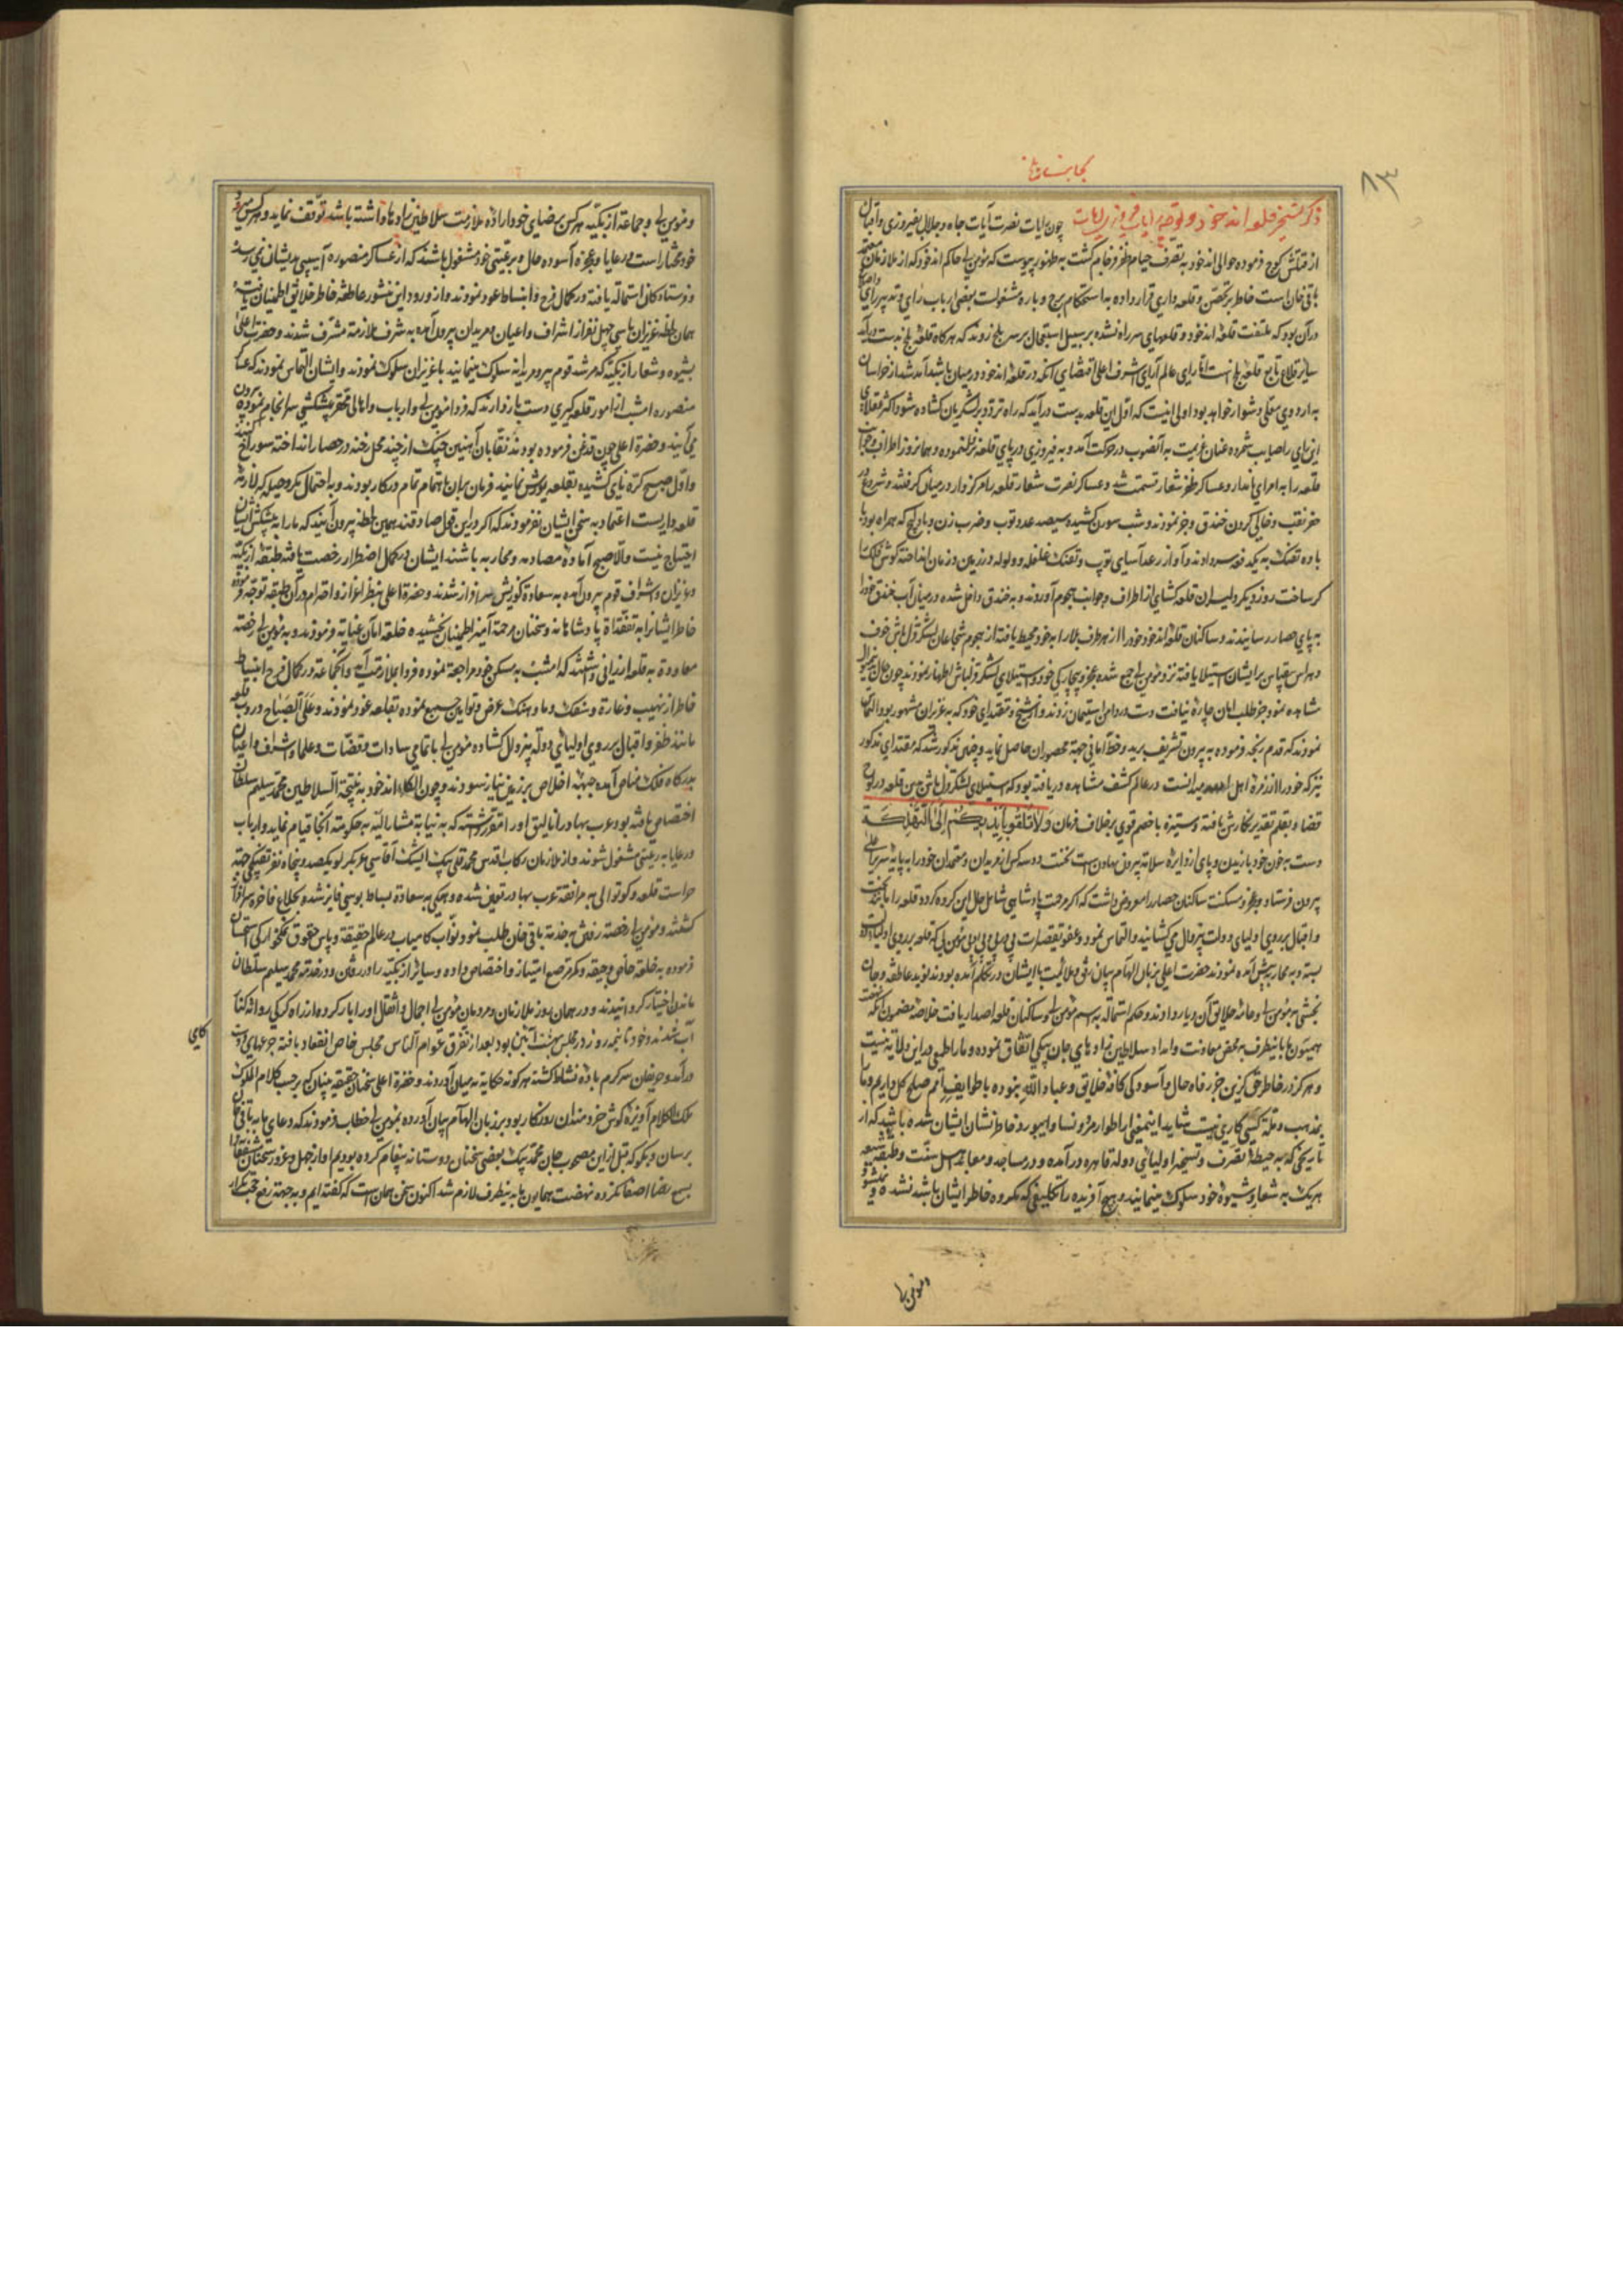 ذکر تسخیر قلعه اندخود و توجه رایات فیروزی آیات چون رایات نصرت آیات جاه و جلال بفیروزی و اقبال
از کوچ فرموده حوالی اندخود به تصرف خیام ظفر فرجام گشت به ظهور پیوست که مؤمن بی حاکم اندخود که از ملازمان معتمد
باقی خان است خاطر بر تحصّن و قلعه داری قرار داده به استحکام برج و باره مشغولست بعضی ارباب رای و تدبیر رای
در آن بود که ملتفت قلعه اندخود و قلعهای سر راه نشده بر سبیل استعجال بر سر بلخ روند که هرگاه قلعه بلخ بدست درآید
سایر قلاع تابع قلعه بلخ است امّا رای عالم آرای اشرف اعلی اقتضای آنکه در قلعه اندخود در میان باشد آمد شد از خراسان
به اردوی معلی دشوار خواهد بود اولی اینست که اوّل این قلعه بدست درآید که راه تردد بر لشکریان گشاده شود اکثر عقلا
این رای را صایب شمرده عنان عزیمت به آنصوب در حرکت آمد و به فیروزی در پای قلعه نزول نموده و همانروز اطراف و جوانب
قلعه را به امرای نامدار و عساکر ظفر شعار قسمت شد و عساکر نصرت شعار قلعه را مرکزوار در میان گرفتند و شروع در
حفر نقب و خالی کردن خندق و جر نمودند و شب سورن کشیده سیصد عدد توپ و ضرب زن و بادلیج که همراه بود با
باده تفنگ به یکدفعه سر دادند و آواز رعد آسای توپ و تفنگ غلغله و ولوله در زمین و زمان انداخته گوش فلک را
کر ساخت روز دیگر دلیران قلعه گشای از اطراف و جوانب هجوم آوردند و به خندق داخل شده در میان آب خندق خود را
به پای حصار رسانیدند و ساکنان قلعه اندخود خود را از هر طرف بلا را به خود محیط یافته از هجوم شجاعان لشکر قزلباش خوف
و هراس بیقیاس بر ایشان استیلا یافته نزد مؤمن بی جمع شده عجز و بیچارگی خود و استیلای لشکر قزلباش اظهار نمودند چون حال بدین منوال
مشاهده نمود جز طلب امان چاره نیافت دست در دامن استیمان زدند و از شیخ و مقتدای خود که به عزیزان مشهور بود التماس
نمودند که قدم رنجه فرموده به بیرون تشریف برید و خط امانی جهة محصوران حاصل نماید و چنین مذکور شد که مقتدای مذکور
نیز که خود را از زمره اهل الله میدانست در عالم کشف مشاهده دریافته بود که استیلای لشکر قزلباش بدین قلعه در لوح
قضا و بقلم تقدیر نگارش یافته و ستیزه با خصم قوی برخلاف فرمان وَلَا تُلْقُوا بِأَيْدِيكُمْ إِلَى التَّهْلُكَة
دست به خون خود یازیدن و پای از دایره سلامة بیرون نهادن است نخست دو سه کس از مریدان و معتمدان خود را به پایه سریر اعلی
بیرون فرستاد و عجز و مسکنت ساکنان حصار را معروض داشت که اگر مرحمت پادشاهی شامل حال این گروه گردد قلعه را مانند
و اقبال بر روی اولیای دولت بیزوال می گشایند و التماس نمود و عفو تقصیرات مؤمن بی که قلعه بر روی اولیای دولت
بسته و به محاربه پیش آمده نمودند حضرت اعلی بزبان الهام بیان برفق و ملائمت با ایشان در تکلم آمده بودند نوید عاطفه و جان
بخشی به مؤمن بی و عامّه خلایق آن دیار دادند و حکم استمالة به اسم مؤمن بی و ساکنان قلعه اصدار یافت خلاصه مضمون آنکه نهضت
همیون ما باینطرف به محض معاونت و امداد سلاطین زاده های جان بیکی اتفاق نموده و ما را طمعی در این ولایة نیست
و هرگز در خاطر حق گزین جز رفاه حال و آسودگی کافّه خلایق و عباد اللّه نبوده با طوایف اُمم صلح کل داریم و ما را
بمذهب و ملة کسی کاری نیست شاید اینمعنی از اطوار مرو و نسا و ابیورد خاطر نشان ایشان شده باشد که از
تاریخی که به حیطة تصرف و تسخیر اولیای دولة قاهره درآمده و در مساجد و معابد اهل سنّت و طبقه شیعه
هر یک به شعار و شیوه خود سلوک مینمایند و هیچ آفریده را تکلیفی که مکروه خاطر ایشان باشد نشده و نمیشود
و مؤمن بی
و مؤمن بی و جماعة ازبکیّه هر کس برضای خود اراده ملازمت سلاطین زاده ها داشته باشد توقف نماید و هر کس میرود
خود مختار است و رعایا و عجزه آسوده حال و برعیّتی خود مشغول باشند که از عساکر منصوره آسیبی بدیشان نمی رسد
فرستادگان استمالة یافته در کمال فرح و انبساط عود نمودند و از ورود این منشور عاطفة خاطر خلایق اطمینان یافته
همان لحظه عزیزان با سی چهل نفر از اشراف و اعیان و مریدان بیرون آمده به شرف ملازمة مشرّف شدند و حضرت اعلی
بشیوه و شعار ازبکیّه که مرشد قوم پیر و مریدانه سلوک مینمایند با عزیزان سلوک نمودند و ایشان التماس نمودند که عساکر
منصوره امشب از امور قلعه گیری دست باز دارند که فردا مؤمن بی و ارباب و اهالی تحفه و پیشکشی سرانجام نموده بیرون
می آیند و حضرة اعلی چون قدغن فرموده بودند نقّابان آهنین چنگ از چند محل رخنه در حصار انداخته سوراخ کنند
و اوّل صبح کرّه نای کشیده بقلعه یورش نمایند فرمان بران باهتمام تمام در کار بودند و به احتمال مکر و حیله که لازمة
قلعه داریست اعتماد به سخن ایشان نفرمودند که اگر در این قول صادقند همین لحظه بیرون آیند که ما را به پیشکش ایشان
احتیاج نیست و الّا صبح آماده مصادمه و محاربه باشند ایشان در کمال اضطرار رخصت یافته طبقة ازبکیّه
و عزیزان و اشراف قوم بیرون آمده به سعادة کورنش سرافراز شدند و حضرة اعلی بنظر اعزاز و احترام در آن طبقه توجه فرموده
خاطر ایشانرا به تفقّدات پادشاهانه و سخنان مرحمة آمیز اطمینان بخشیده خلعة امان عنایة فرمودند و به مؤمن بی رخصة
معاودة به قلعه ارزانی داشتند که امشب به مسکن خود مراجعة نموده فردا بملازمت آید و آنجماعة در کمال فرح و انبساط
خاطر از نهیب و غارة و سفک دما و هتک عرض و نوامیس جمع نموده بقلعه عود نمودند و عَلَی الصَّباح دروب قلعه
مانند ظفر و اقبال بر روی اولیای دولة بیزوال گشاده مؤمن بی با تمامی سادات و قضات و علما و اشراف و اعیان
بدرگاه فلک مناص آمده جبهه اخلاص بر زمین نیاز سودند و چون الکاء اندخود به نتیجة السلاطین محمّد سلیم سلطان
اختصاص یافته بود و عرب بهادر اتالیق او را مقرّر گشت که به نیابة مشارالیّه به حکومة آنجا قیام نماید و ارباب
و رعایا به رعیتی مشغول شوند و از ملازمان رکاب اقدس محمد قلی بیک ایشیک آقاسی عربگرلو یکصد و پنجاه نفر تفنکچی جهة
حراست قلعه و کوتوالی به مرافقة عرب بهادر تعیین شده و همگی به سعادة بساط بوسی فایز شده بخلاع فاخره سرافراز
گشتند و مؤمن بی رخصة رفتن به خدمة باقی خان طلب نمود و نوّاب کامیاب در عالم حقیقة و پاس حقوق نمکخوارگی استحسان
فرموده به خلعة خاص و جیقه و کمر مرصع امتیاز و اختصاص داده و سایر ازبکیّه را در رفتن و در خدمة محمد سلیم سلطان
ماندن اختیار گردانیدند و در همان روز ملازمان و مردمان مؤمن بی احمال و اثقال او را بار کرده از راه کرکی روانه کنار
آب شدند و خود تا نیمه روز در مجلس بهشت آیین بود بعد از تفرّق عوام النّاس مجلس خاص انعقاد یافته جرعهای
درآمد و حریفان سرگرم باده نشاط گشته هر گونه حکایة به میان آوردند و حضرة اعلی سخنان حقیقة بنیان که بر حسب کلام الملوک
ملوک الکلام آویزه گوش خردمندان روزگار بود بر زبان الهام بیان آورده بمؤمن بی خطاب فرمودند که دعای ما به باقی خان
برسان و بگو که قبل از این مصحوب جان محمد بیک بعضی سخنان دوستانه پیغام کرده بودیم او از جهل و غرور سخنان مشفقانه ما
بسمع رضا اصغا نکرده نهضت همایون ما به اینطرف لازم شد اکنون سخن همان است که گفته ایم و به جهة رفع حجّت تکرار